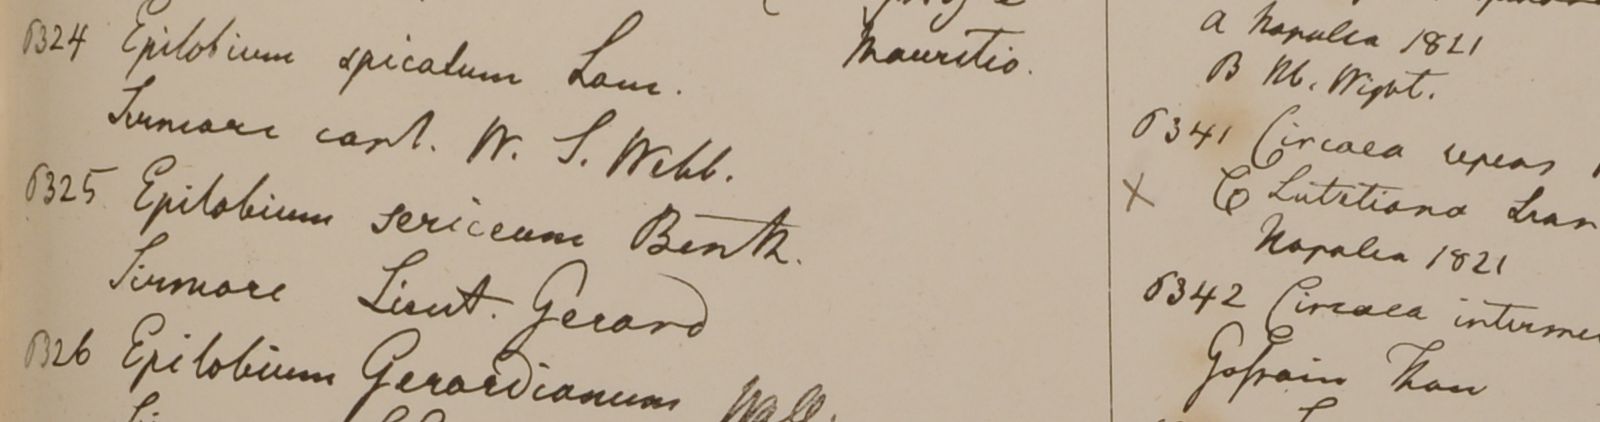 6324 Epilobium spicatum Lam.
Sirmore capt. W. S. Webb.
6325 Epilobium sericeum Benth.
Sirmore Lieut. Gerard
6326 Epilobium Gerardianum Wall.
Mauritio.
a Napalia 1821
B Hb. Wight.
6341 Circaea repens
X C Lutetiana
Napalia 1821
6342 Circaea interme
Gossain Than